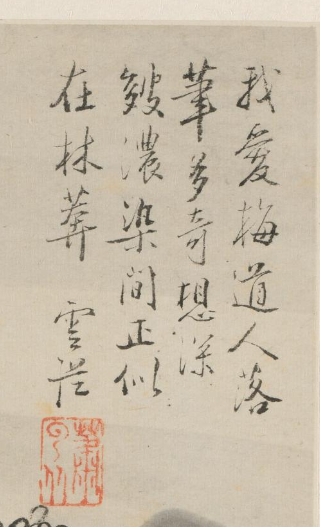 我愛梅道人落
筆多奇想深
皴濃染間正似
在林莽 雲從